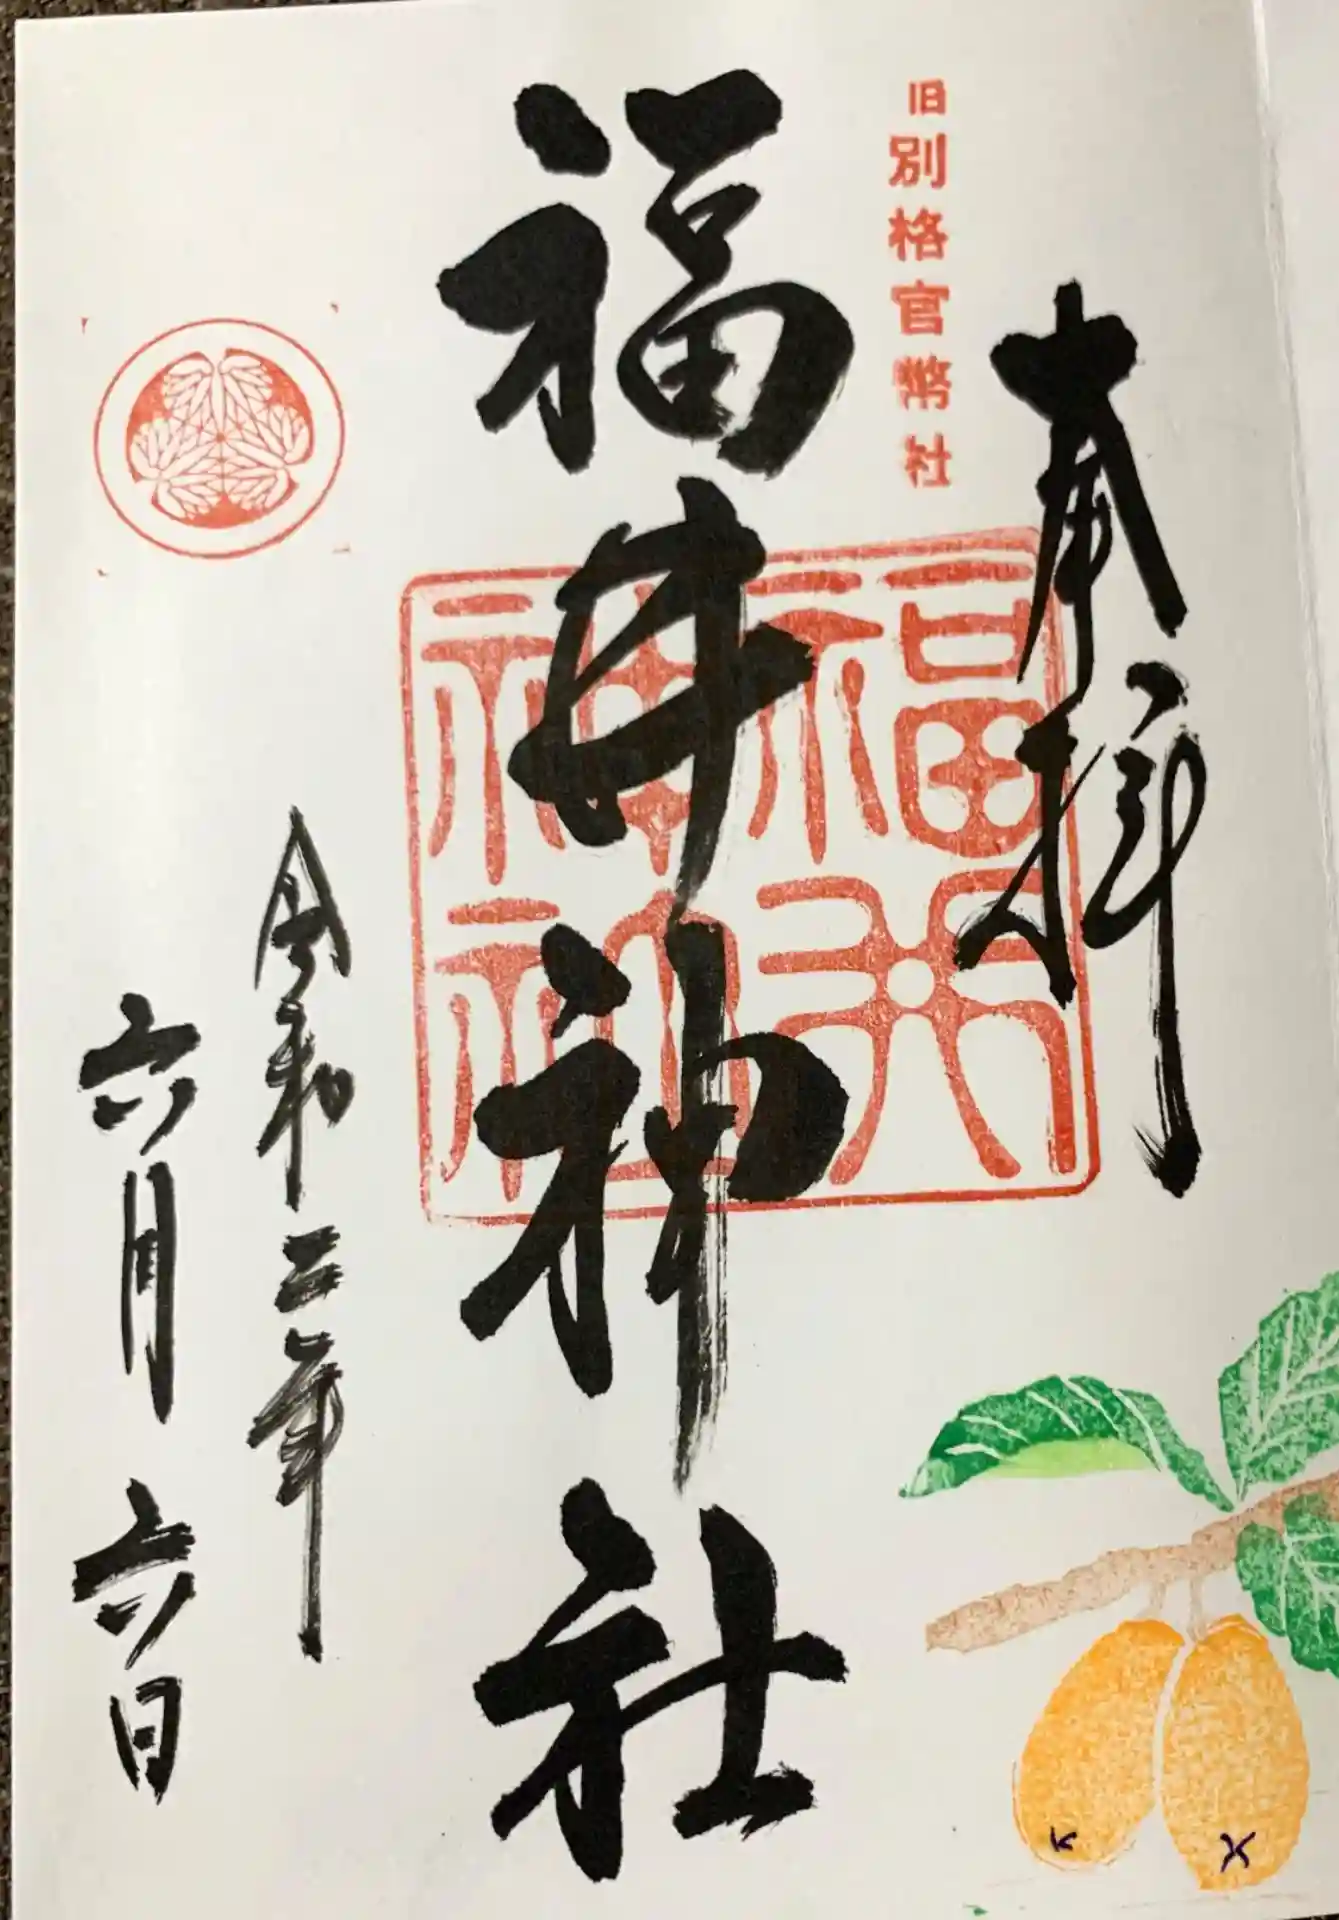 奉拝
旧別格官幣社
福井神社
福井
神社
令和二年
六月六日